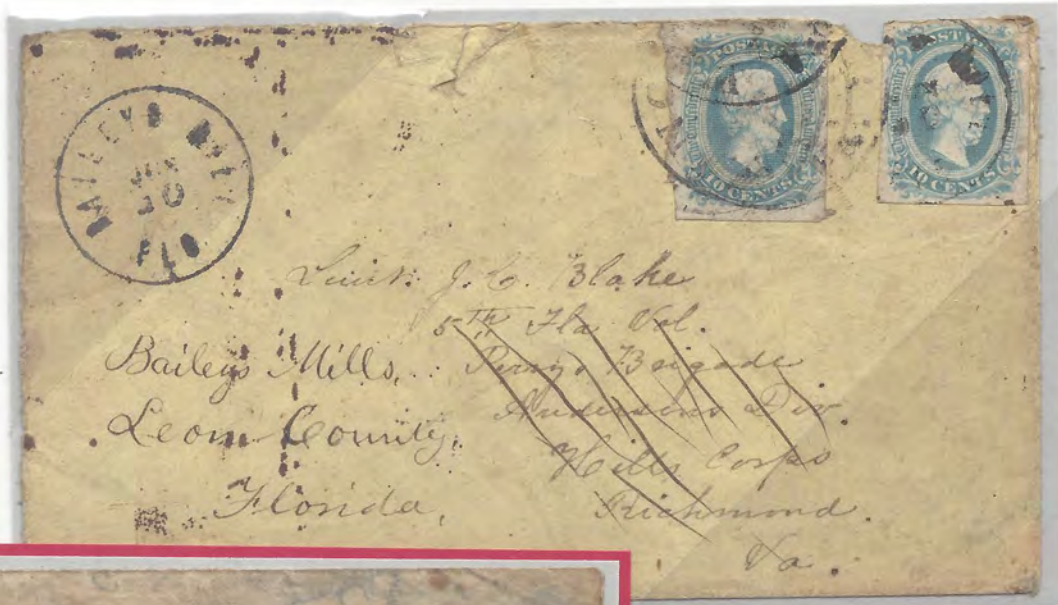 BAILEYS MILL
JUN
10
FLO
POSTAGE
10 CENTS
POSTAGE
10 CENTS
Lieut. J. C. Blake
5TH Fla Vol.
Perrys Brigade
Andersons Div.
Hills Corps
Richmond.
Va.
Baileys Mills,
Leon County,
Florida,